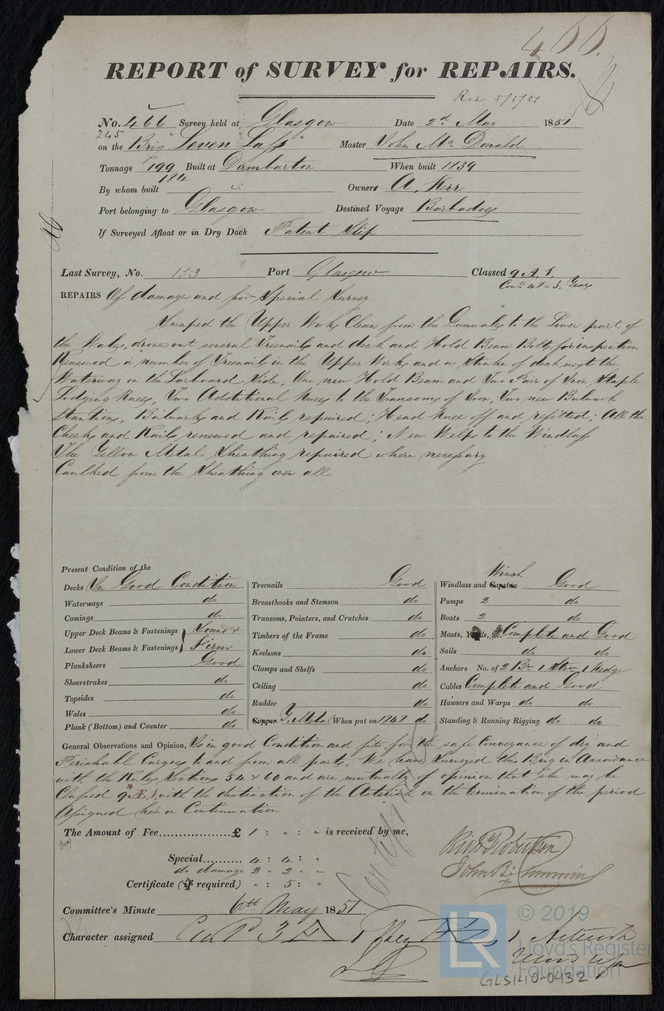 466
REPORT of SURVEY for REPAIRS.
Rec 5/5/51
No. 466 Survey held at Glasgow Date 2nd May 1851
245
on the Brig "Leven Lass" Master John McDonald
Tonnage 199 Built at Dumbarton When built 1839
184
By whom built Owners A. Kerr
Port belonging to Glasgow Destined Voyage Barbadoes
If Surveyed Afloat or in Dry Dock Patent Slip
Last Survey, No. 153 Port Glasgow Classed 9 A 1
Cond 48 - 3 Years
REPAIRS Of damage and for Special Survey
Scraped the Upper Works Clean from the Gunwales to the Lower part of
the Wales, drove out several Treenails and deck and Hold Beam Bolts for inspection
Renewed a number of Treenails in the Upper Work, and a Strake of deck next the
Waterway on the Larboard Side, One new Hold Beam and Two Pair of Iron Staple
Lodging Knees, Two Additional Knees to the Transoms of Iron, Two new Bulwark
Stantions, Bulwarks and Rails repaired; Head Knee off and refitted; All the
Cheeks and Rails renewed and repaired; New Welps to the Windlass
The Yellow Metal Sheathing repaired where necepary
Caulked from the Sheathing over all
Present Condition of the
Decks In Good Condition
Waterways do
Comings do
Upper Deck Beams & Fastenings } Sound &
Lower Deck Beams & Fastenings } Firm
Planksheers Good
Sheerstrakes do
Topsides do
Wales do
Plank (Bottom) and Counter do
Treenails Good
Breasthooks and Stemson do
Transoms, Pointers, and Crutches do
Timbers of the Frame do
Keelsons do
Clamps and Shelfs do
Ceiling do
Rudder do
Copper Y. Metal (When put on 1848 do
Winch
Windlass and Capstan Good
Pumps 2 do
Boats 2 do
Masts, Yards, & Complete and Good
Sails do do
Anchors No. of 2 Br 1 Strm 1 Kedge
Cables Complete and Good
Hawsers and Warps do do
Standing & Running Rigging do do
General Observations and Opinion, Is in good Condition and fit for the safe Conveyance of dry and
Perishable Cargoes to and from all parts. We have Surveyed this Brig in Accordance
with the Rules Sections 54 & 60 and are mutually of opinion that she may be
Classed 9 A 1 with the distinction of the Asterisk on the termination of the period
Assigned her on Continuation
The Amount of Fee £ 1 : " : " is received by me,
Special 4 : 4 : "
do damage 2 : 2 : "
Certificate (if required) " : 5 : "
Richd Robertson
John B. Cumming
Committee's Minute 6th May 1851
Character assigned
© 2019
LR
Lloyd's Register
Foundation
GLS1-10-0432